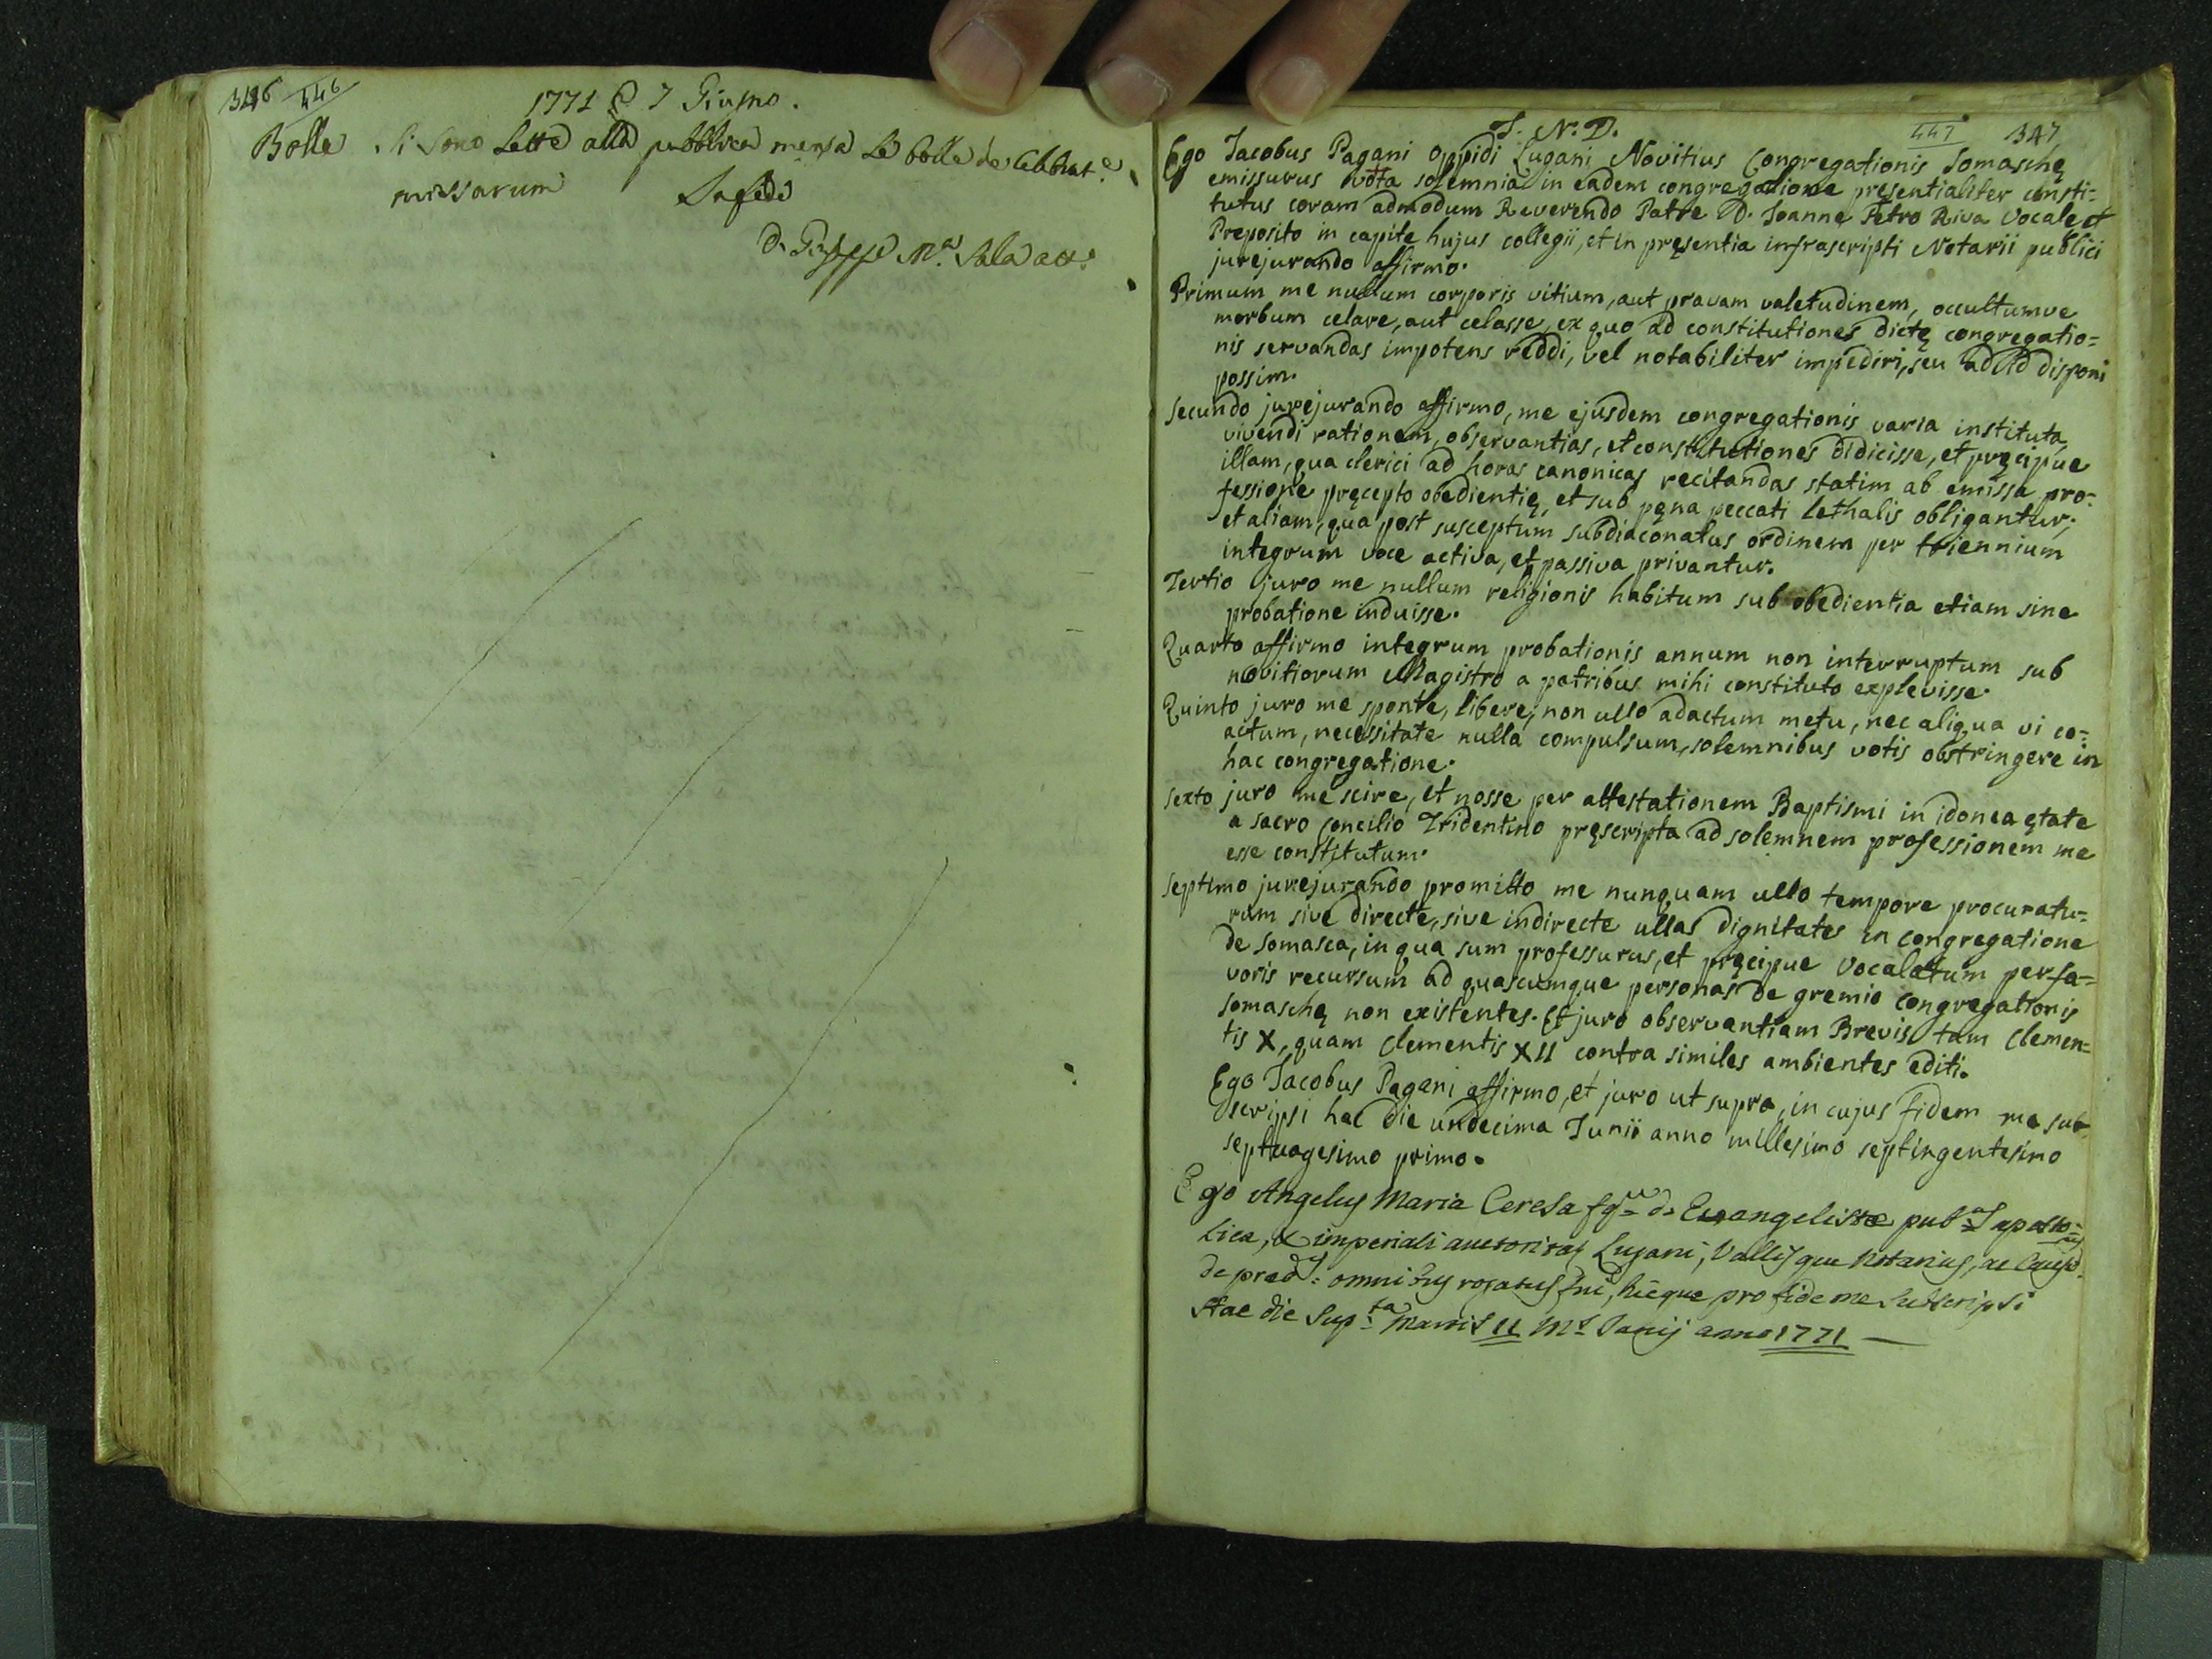 346 446
1771 7 Giugno.
Bolle . Si sono lette alla pubblica mensa le bolle de celebrat.e
missarum In fede
D. Giuseppe M.a Sala att.o
447 347
I. N. D.
Ego Jacobus Pagani oppidi Lugani Novitius Congregationis Somaschę
emissurus vota solemnia in eadem congregatione pręsentialiter consti=
tutus coram admodum Reverendo Patre D. Joanne Petro Riva Vocale et
Preposito in capite hujus collegii, et in pręsentia infrascripti Notarii publici
jurejurando affirmo.
Primum me nullum corporis vitium, aut pravam valetudinem, occultumve
morbum celare, aut celasse, ex quo ad constitutiones dictę congregatio=
nis servandas impotens reddi, vel notabiliter impediri, seu ad id disponi
possim.
Secundo jurejurando affirmo, me ejusdem congregationis varia instituta,
vivendi rationem, observantias, et constitutiones didicisse, et pręcipue
illam, qua clerici ad horas canonicas recitandas statim ab emissa pro=
fessione pręcepto obedientię, et sub pęna peccati lethalis obligantur;
et aliam, qua post susceptum subdiaconatus ordinem per triennium
integrum voce activa, et passiva privantur.
Tertio juro me nullum religionis habitum sub obedientia etiam sine
probatione induisse.
Quarto affirmo integrum probationis annum non interruptum sub
novitiorum Magistro a patribus mihi constituto explevisse.
Quinto juro me sponte, libere, non ullo adactum metu, nec aliqua vi co=
actum, necessitate nulla compulsum, solemnibus votis obstringere in
hac congregatione.
Sexto juro me scire, et nosse per attestationem Baptismi in idonea ętate
a sacro Concilio Tridentino pręscripta ad solemnem professionem me
esse constitutum.
Septimo jurejurando promitto me nunquam ullo tempore procuratu=
rum sive directe, sive indirecte ullas dignitates in congregatione
de Somasca, in qua sum professurus, et pręcipue Vocalatum per fa=
voris recursum ad quascumque personas de gremio congregationis
Somaschę non existentes. Et juro observantiam Brevis tam Clemen=
tis X, quam Clementis XII contra similes ambientes editi.
Ego Jacobus Pagani affirmo, et juro ut supra, in cujus fidem me sub
scripsi hac die undecima Junii anno millesimo septingentesimo
septuagesimo primo.
Ego Angelus Maria Ceresa fq.m D. Evangelistæ pub.s Aposto=
lica, & imperiali auctoritat. Lugani, Vallisque Notarius, ac Causid.
de pred.s omnibus rogatus fui, hicque pro fide me subscripsi
Hac die Sup.ta Martis 11 M.s Junij anno 1771